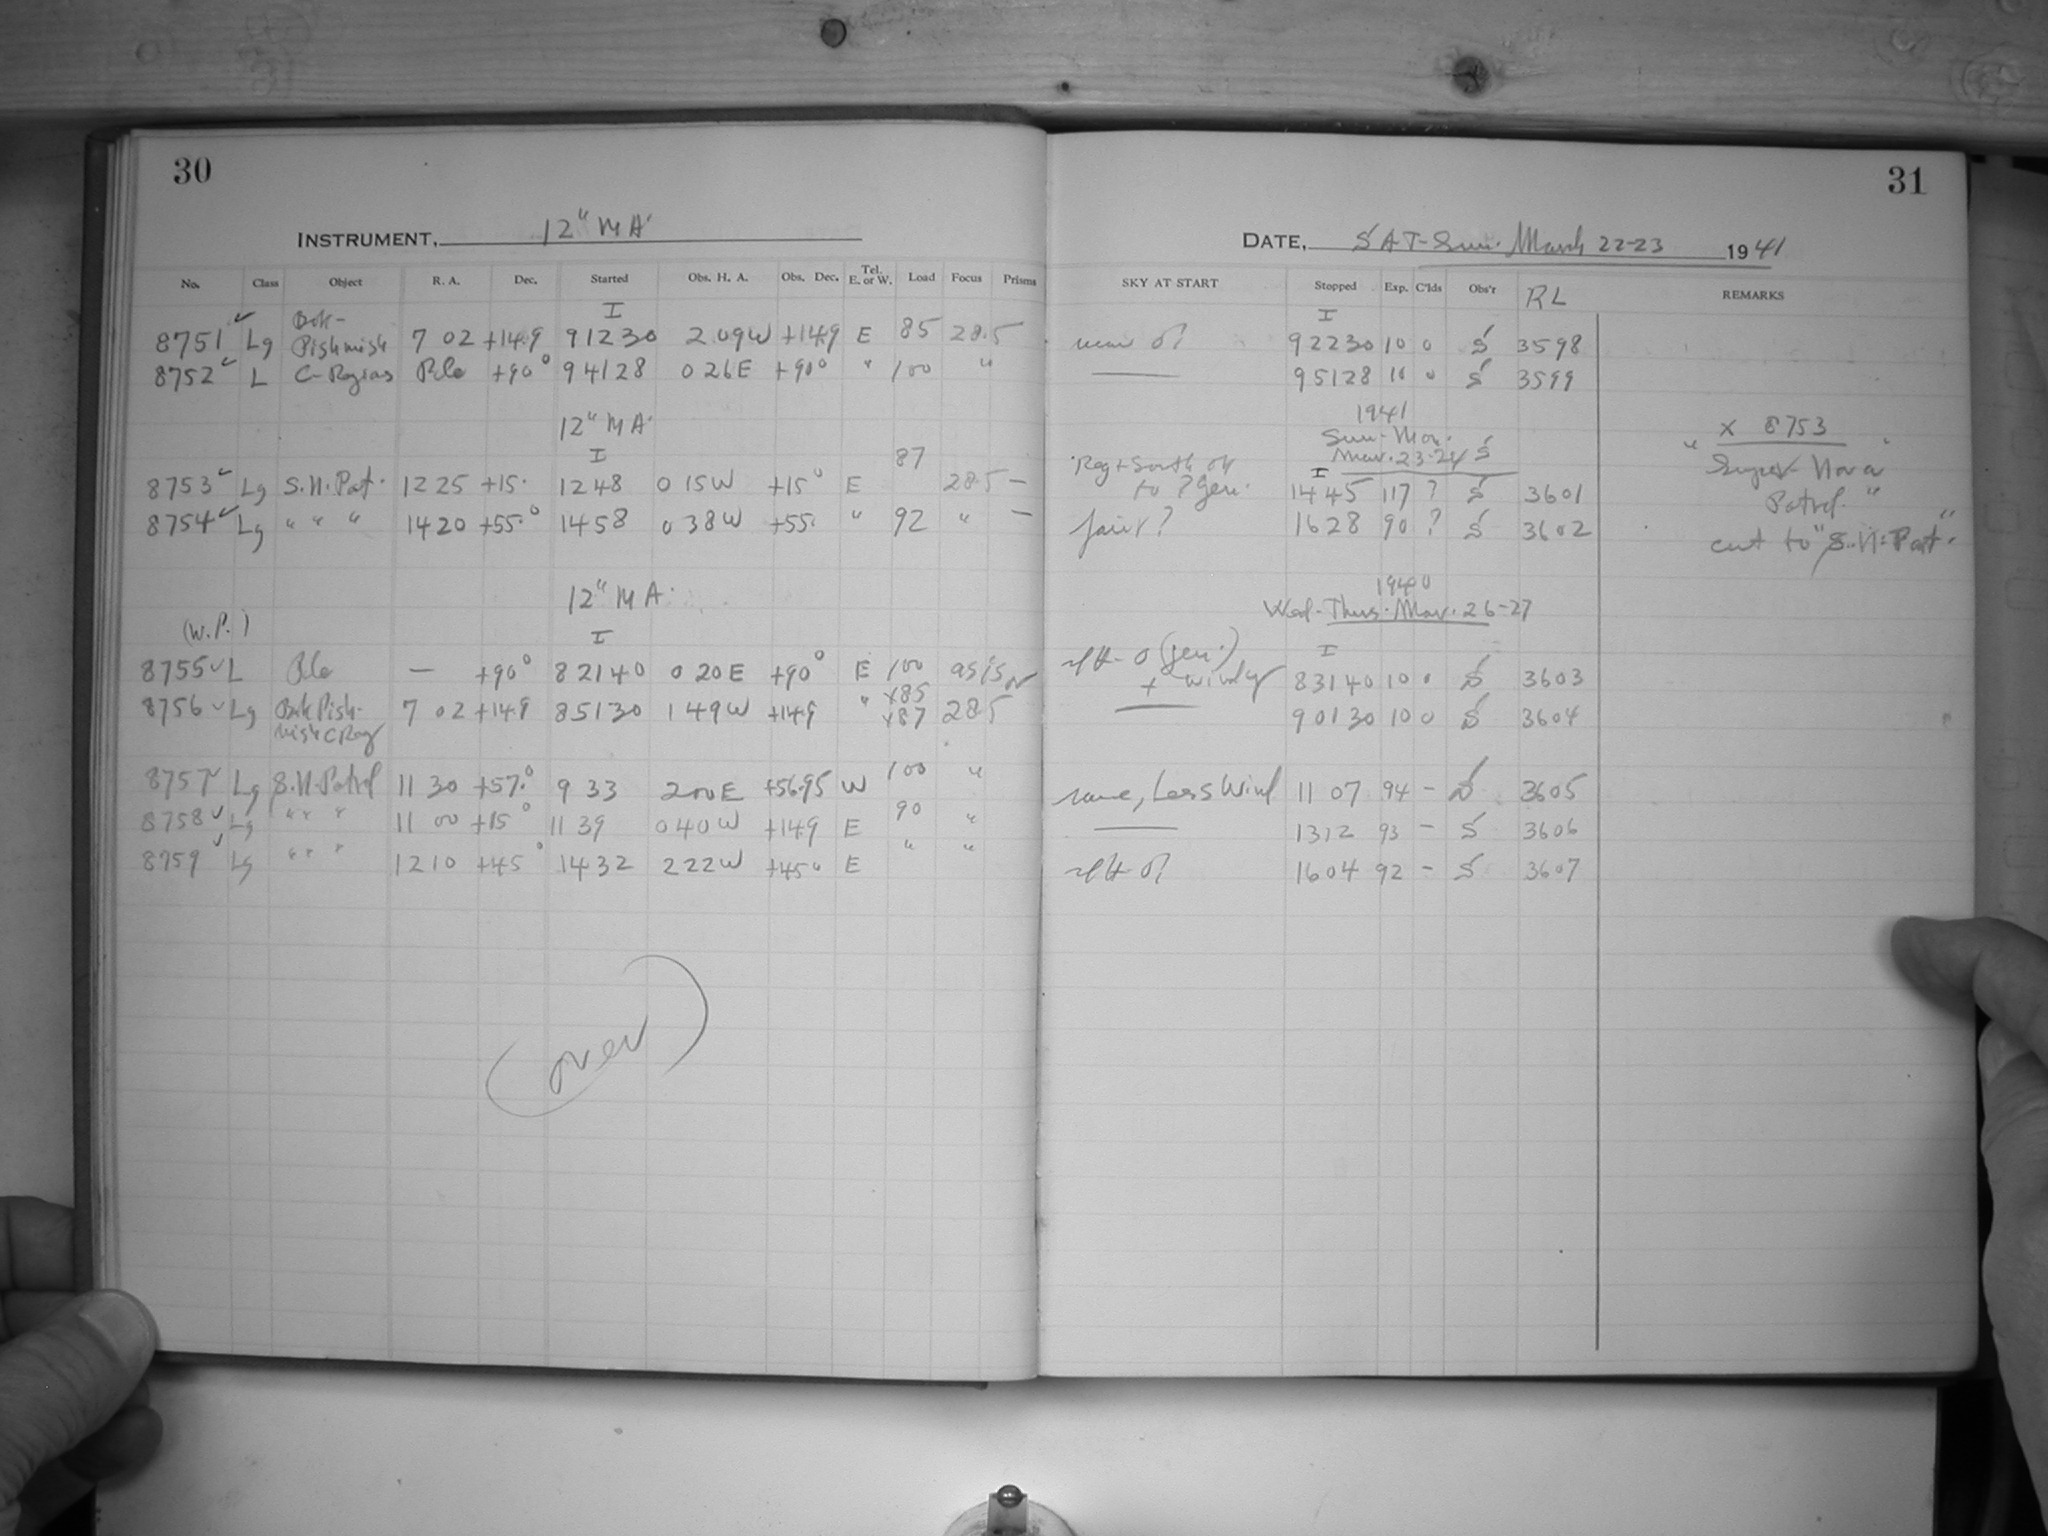 30
INSTRUMENT, 12" MA
No. Class Object R. A. Dec. Started Obs. H. A. Obs. Dec. Tel. E. or W. Load Focus Prisms
I
Bok-
8751 ✓ Lg Pishmish 7 02 +14.9 9 12 30 2 09W +14.9 E 85 28.5
8752 ✓ L C-Regions Pole +90° 9 41 28 0 26E +90° " 100 "
12" MA.
I
8753 ✓ Lg S.N.Pat. 12 25 +15. 12 48 0 15W +15° E 87 28.5 —
8754 ✓ Lg " " " 14 20 +55.° 14 58 0 38W +55. " 92 " —
12" MA.
(W.P.)
I
8755 ✓ L Pole — +90° 8 21 40 0 20E +90° E 100 as is
8756 ✓ Lg Bok Pish- 7 02 +14.9 8 51 30 1 49W +14.9 " x85 x87 28.5
mish C Reg
8757 ✓ Lg S.N.Patrol 11 30 +57.° 9 33 2 00E +56.95 W 100 "
8758 ✓ Lg " " " 11 00 +15° 11 39 0 40W +14.9 E 90 "
8759 ✓ Lg " " " 12 10 +45° 14 32 2 22W +45° E " "
(over)
31
DATE, SAT-Sun. March 22-23 1941
SKY AT START Stopped Exp. C'lds Obs'r RL REMARKS
I
9 22 30 10 0 S 3598
—— 9 51 28 10 0 S 3599
1941
Sun-Mon.
Mar. 23-24 S
I
Reg + South ok
to ? Gen. 14 45 117 ? S 3601
fair? 16 28 90 ? S 3602
x 8753
" Super-Nova
Patrol "
cut to "S.N.Pat."
1940
Wed-Thurs. Mar. 26-27
I
(gen.)
+ windy 8 31 40 10 0 S 3603
—— 9 01 30 10 0 S 3604
same, Less Wind 11 07 94 — S 3605
—— 13 12 93 — S 3606
16 04 92 — S 3607